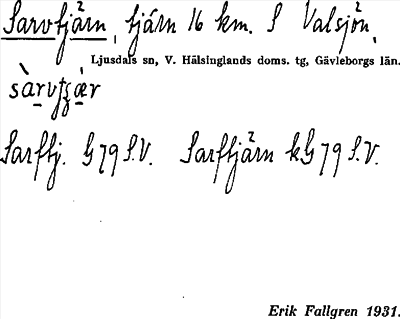 Sarvtjärn, tjärn 16 km. S Valsjön,
Ljusdals sn, V. Hälsinglands doms. tg, Gävleborgs län.
Sarftj. G 79 S.V. Sarftjärn kG 79 S.V.
Erik Fallgren 1931.